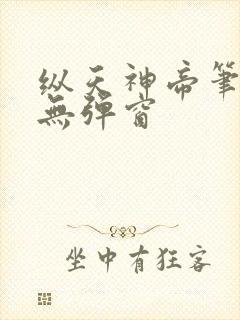 纵天神帝筆
無彈窗
坐中有狂客